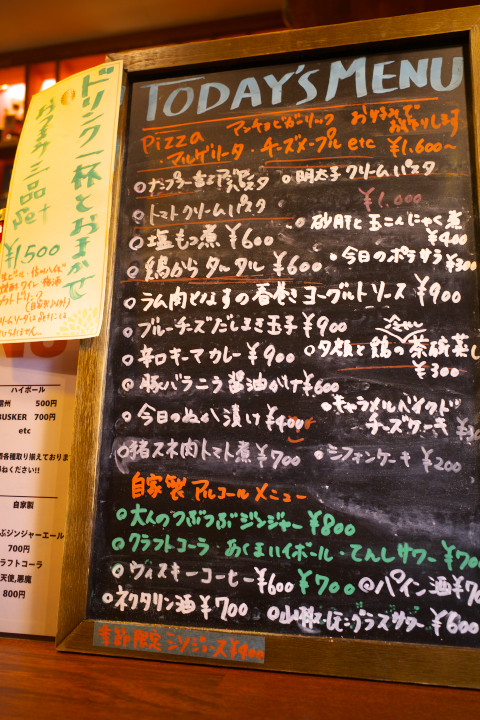 TODAY'S MENU
Pizza アンチョビガーリック お好みで お作りします
・マルゲリータ・チーズメープル etc ¥1,600~
○ナンプラー香る パスタ
○明太子クリームパスタ
○トマトクリームパスタ
¥1,000
○塩もつ煮 ¥600
○砂肝と玉こんにゃく煮 ¥400
○鶏から タルタル ¥600
○今日のポテサラ ¥300
○ラム肉となすの春巻き ヨーグルトソース ¥900
○ブルーチーズだしまき玉子 ¥900
○辛口キーマカレー ¥900
○夕顔と鶏の茶碗蒸し ¥300
○豚バラニラ醤油がけ ¥600
○今日のぬか漬け ¥400
○キャラメルベイクド チーズケーキ
○猪スネ肉トマト煮 ¥700
○シフォンケーキ ¥200
自家製アルコールメニュー
○大人のつぶつぶジンジャー ¥800
○クラフトコーラ・あくまハイボール・てんしサワー ¥700
○ウィスキーコーヒー ¥600 ¥700
○パイン酒 ¥70
○ネクタリン酒 ¥700
¥600
季節限定 シソジュース ¥400
ドリンク一杯とおまかせ
おつまみ三品 Set
¥1,500
ハイボール
500円
BUSKER 700円
etc
各種取り揃えておりま
ねください!!
自家製
ぶジンジャーエール
700円
ラフトコーラ
天使,悪魔
800円